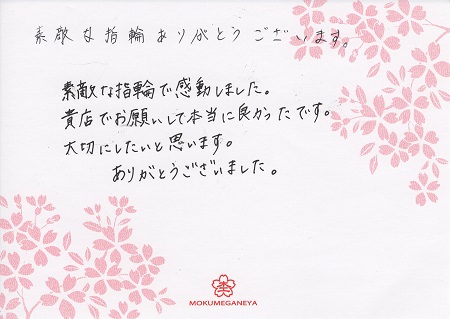 素敵な指輪ありがとうございます。
素敵な指輪で感動しました。
貴店でお願いして本当に良かったです。
大切にしたいと思います。
ありがとうございました。
MOKUMEGANEYA